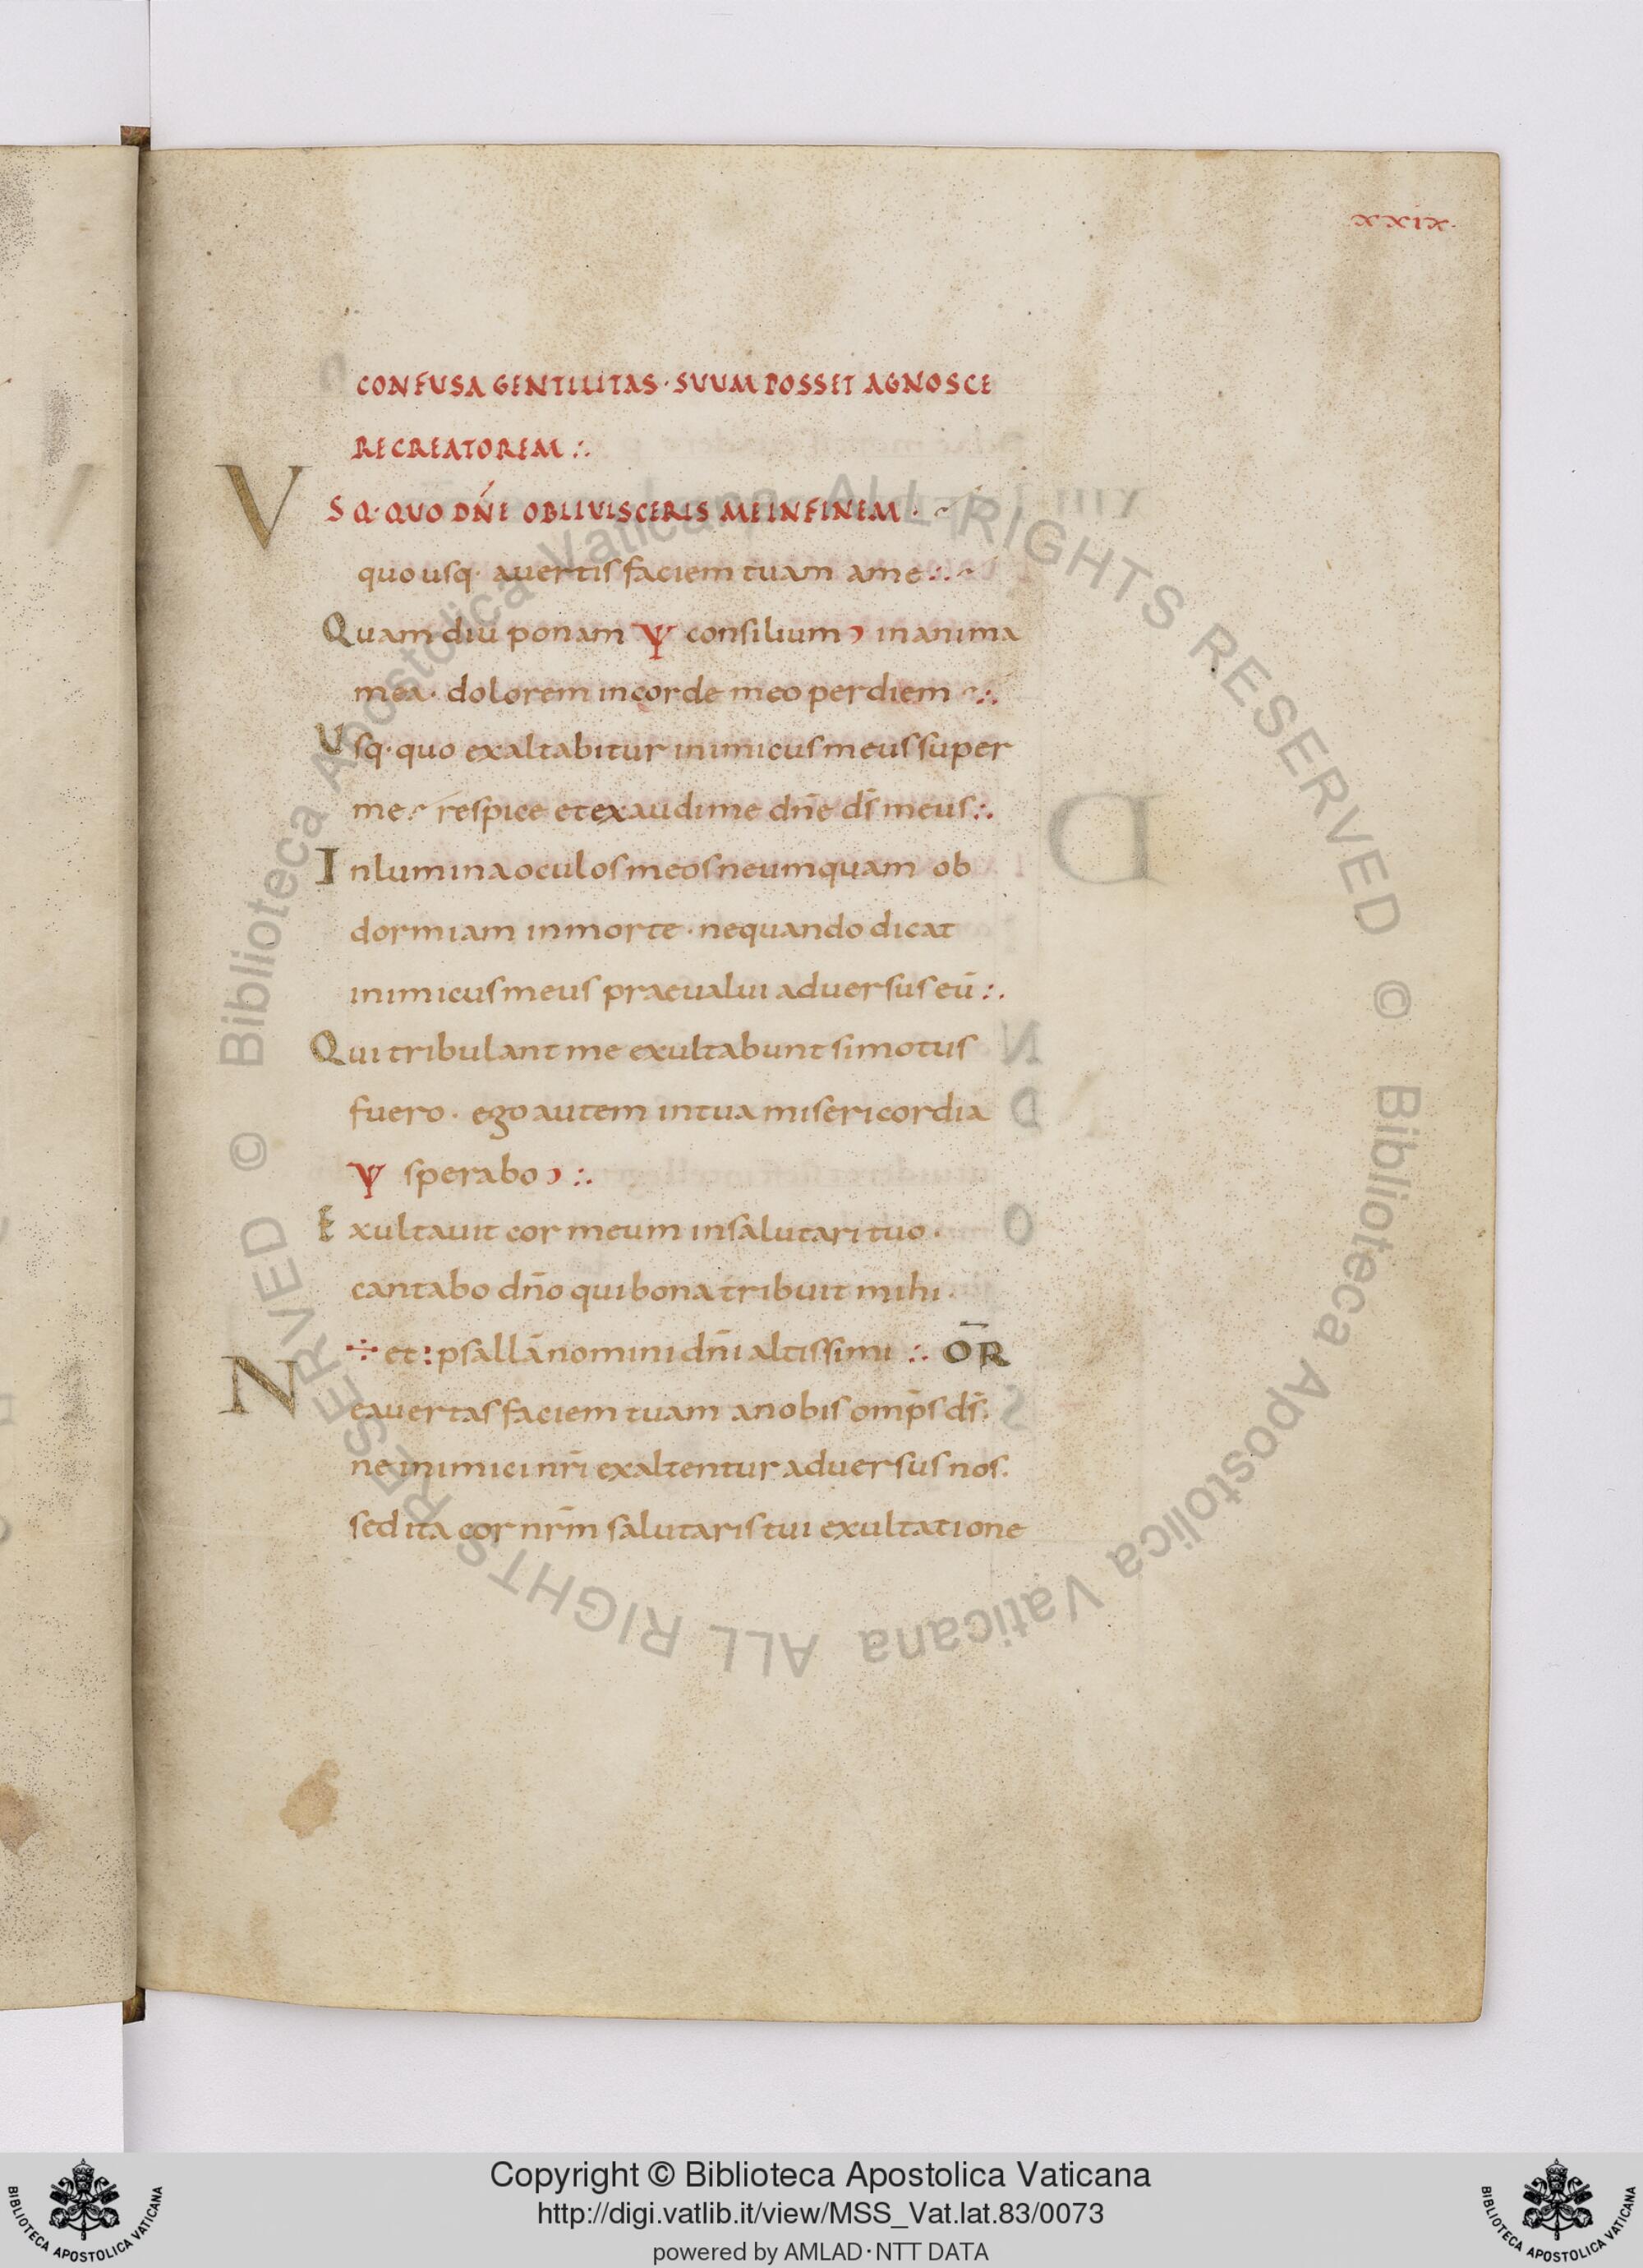 xxix.
CONFUSA GENTILITAS · SUUM POSSET AGNOSCE
RECREATOREM :.
VSQ· QUO DÑE OBLIVISCERIS ME IN FINEM ·
quo usq· avertis faciem tuam a me :.
Quam diu ponam Ψ consilium ͻ in anima
mea · dolorem in corde meo per diem :.
Vsq· quo exaltabitur inimicus meus super
me · respice et exaudi me dñe ds̄ meus :.
Inlumina oculos meos ne umquam ob
dormiam in morte · ne quando dicat
inimicus meus praevalui adversus eū :.
Qui tribulant me exultabunt si motus
fuero · ego autem in tua misericordia
Ψ sperabo ͻ :.
Exultavit cor meum in salutari tuo ·
cantabo dño qui bona tribuit mihi ·
÷ et : psallā nomini dñi altissimi :. ŌR
Ne avertas faciem tuam a nobis omp̄s ds̄.
ne inimici nr̄i exaltentur adversus nos.
sed ita cor nr̄m salutaris tui exultatione
© Biblioteca Apostolica Vaticana ALL RIGHTS RESERVED © Biblioteca Apostolica Vaticana ALL RIGHTS RESERVED
Copyright © Biblioteca Apostolica Vaticana
http://digi.vatlib.it/view/MSS_Vat.lat.83/0073
powered by AMLAD·NTT DATA
BIBLIOTECA APOSTOLICA VATICANA
BIBLIOTECA APOSTOLICA VATICANA